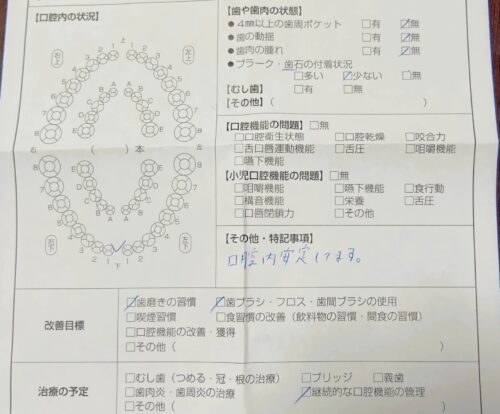 【口腔内の状況】
上
右上
左上
1 1
2 2
3 3
4 4
5 5
6 6
7 7
8 8
A A
B B
C C
D D
E E
( )本
E E
D D
C C
B B
A A
8 8
7 7
6 6
5 5
4 4
3 3
2 1 1 2
右下
左下
下
【歯や歯肉の状態】
●4㎜以上の歯周ポケット □有 ☑無
●歯の動揺 □有 ☑無
●歯肉の腫れ □有 ☑無
●プラーク・歯石の付着状況
□多い ☑少ない □無
【むし歯】 □有 □無
【その他】( )
【口腔機能の問題】□無
□口腔衛生状態 □口腔乾燥 □咬合力
□舌口唇運動機能 □舌圧 □咀嚼機能
□嚥下機能
【小児口腔機能の問題】□無
□咀嚼機能 □嚥下機能 □食行動
□構音機能 □栄養 □舌圧
□口唇閉鎖力 □その他
【その他・特記事項】
口腔内安定してます。
改善目標
☑歯磨きの習慣 ☑歯ブラシ・フロス・歯間ブラシの使用
□喫煙習慣 □食習慣の改善(飲料物の習慣・間食の習慣)
□口腔機能の改善・獲得
□その他( )
治療の予定
□むし歯(つめる・冠・根の治療) □ブリッジ □義歯
□歯肉炎・歯周炎の治療 ☑継続的な口腔機能の管理
□その他(